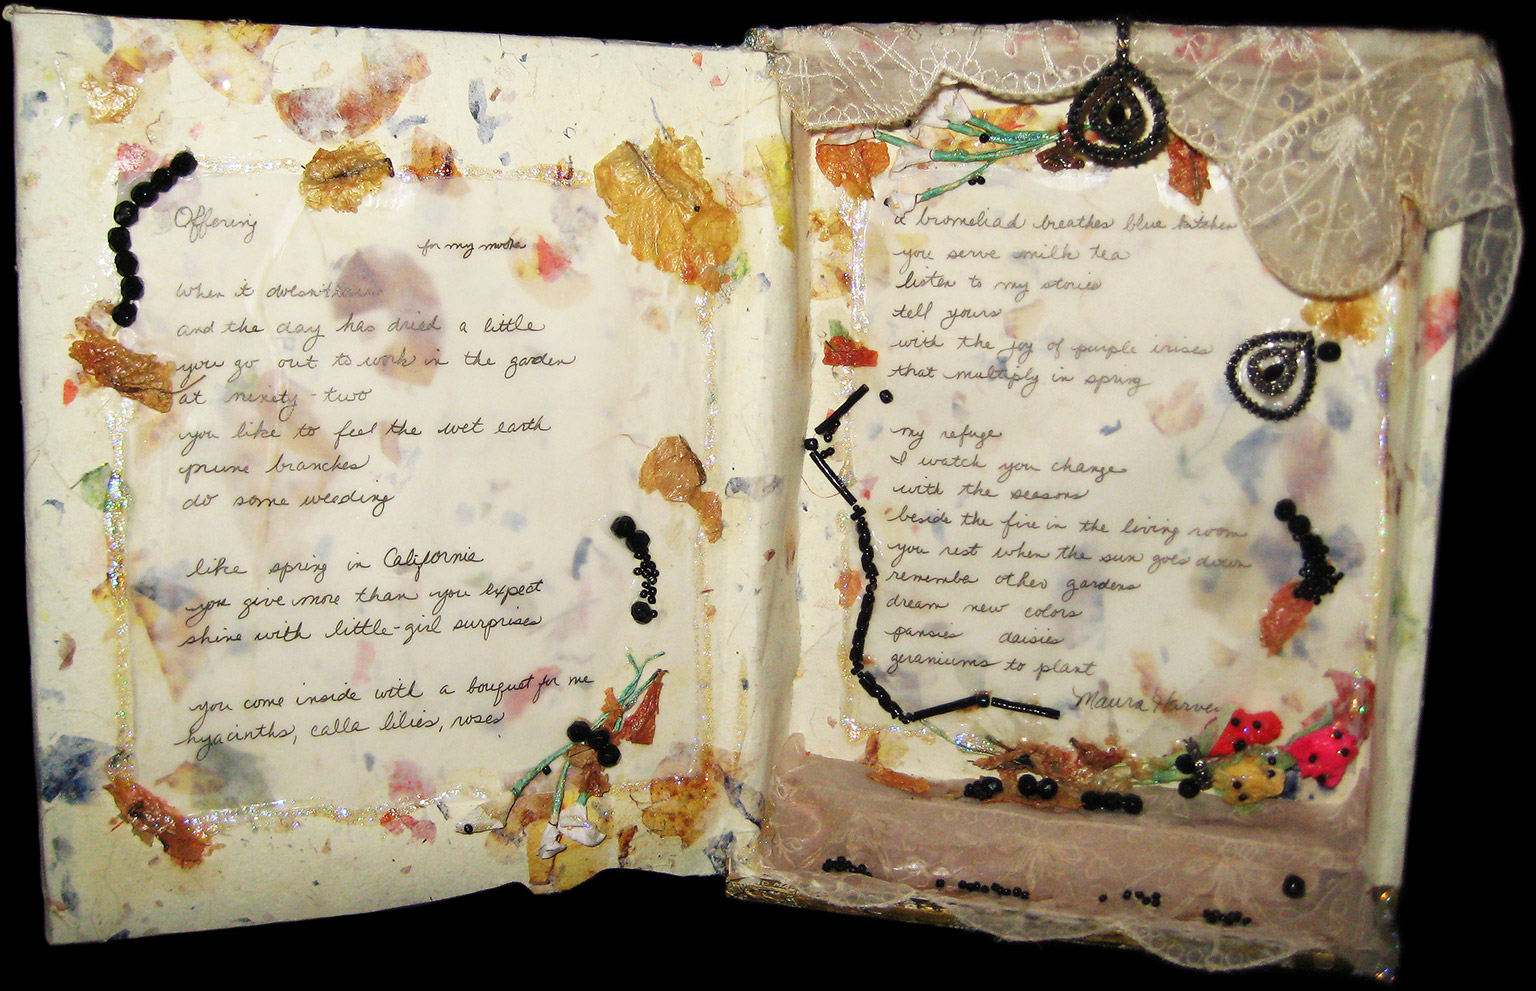 Offering
for my mother
When it doesn't rain
and the day has dried a little
you go out to work in the garden
at ninety-two
you like to feel the wet earth
prune branches
do some weeding
like spring in California
you give more than you expect
shine with little-girl surprises
you come inside with a bouquet for me
hyacinths, calla lilies, roses
a bromeliad breathes blue kitchen
you serve milk tea
listen to my stories
tell yours
with the joy of purple irises
that multiply in spring
my refuge
I watch you change
with the seasons
beside the fire in the living room
you rest when the sun goes down
remember other gardens
dream new colors
pansies daisies
geraniums to plant
Maura Harvey